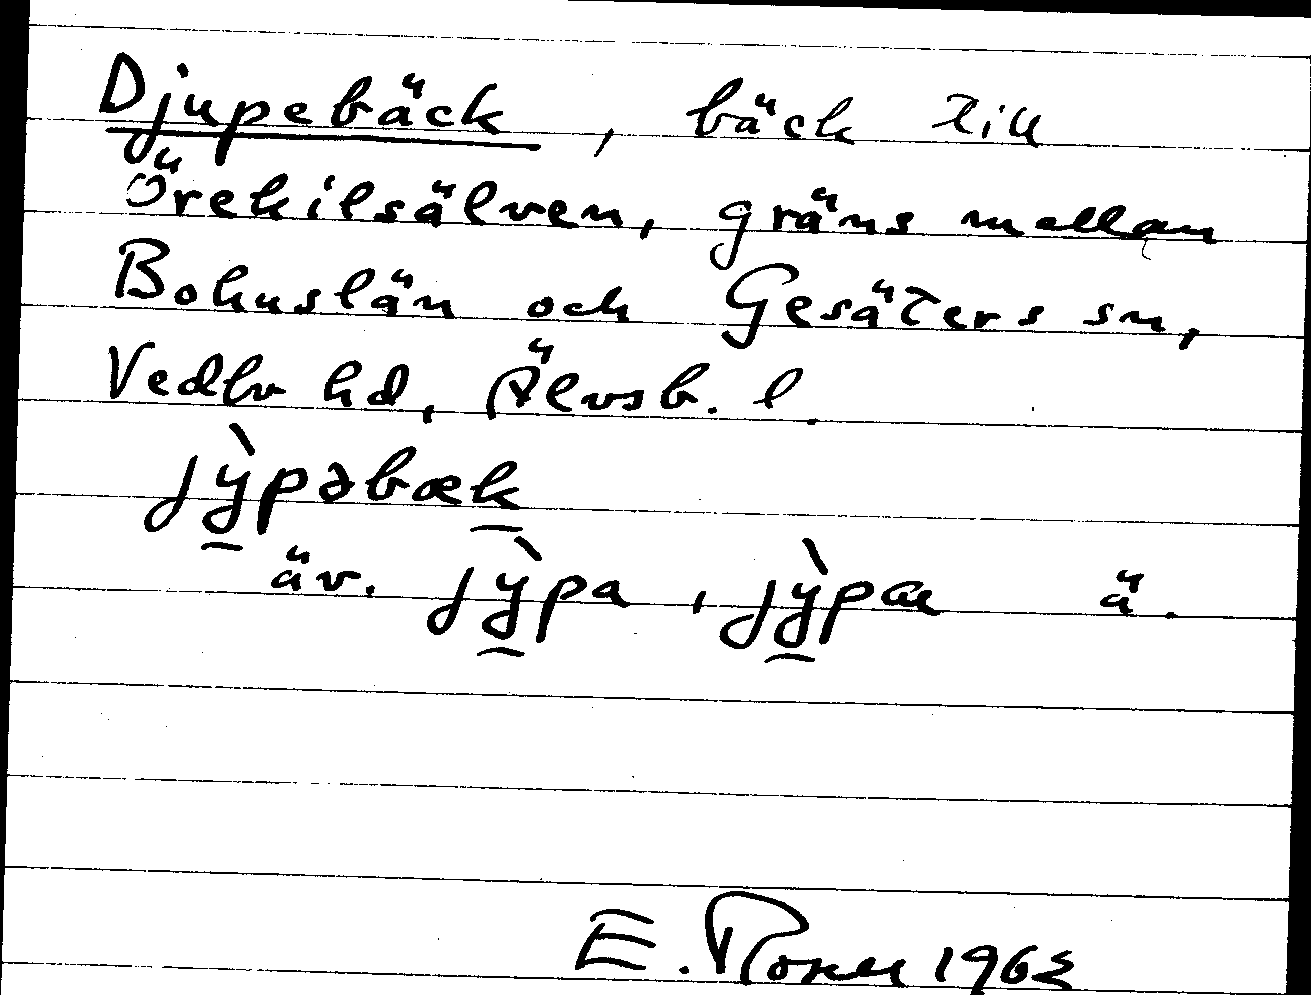 Djupebäck, bäck till
Örekilsälven, gräns mellan
Bohuslän och Gesäters sn,
Vedbo hd, Älvsb. l.
jỳpəbæk
äv. jỳpa, jỳpæ ä.
E. 1963